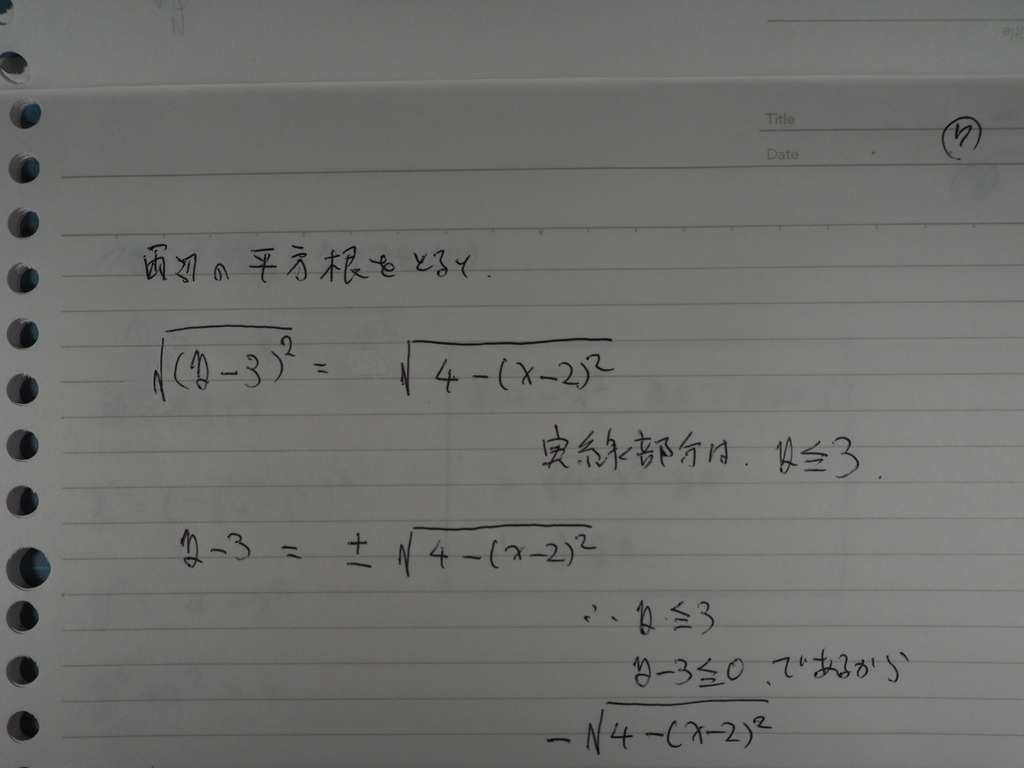 Title
Date
両辺の平方根をとると.
√(y-3)² = √4-(x-2)²
実線部分は. y≦3.
y-3 = ±√4-(x-2)²
∴ y≦3
y-3≦0、であるから
-√4-(x-2)²